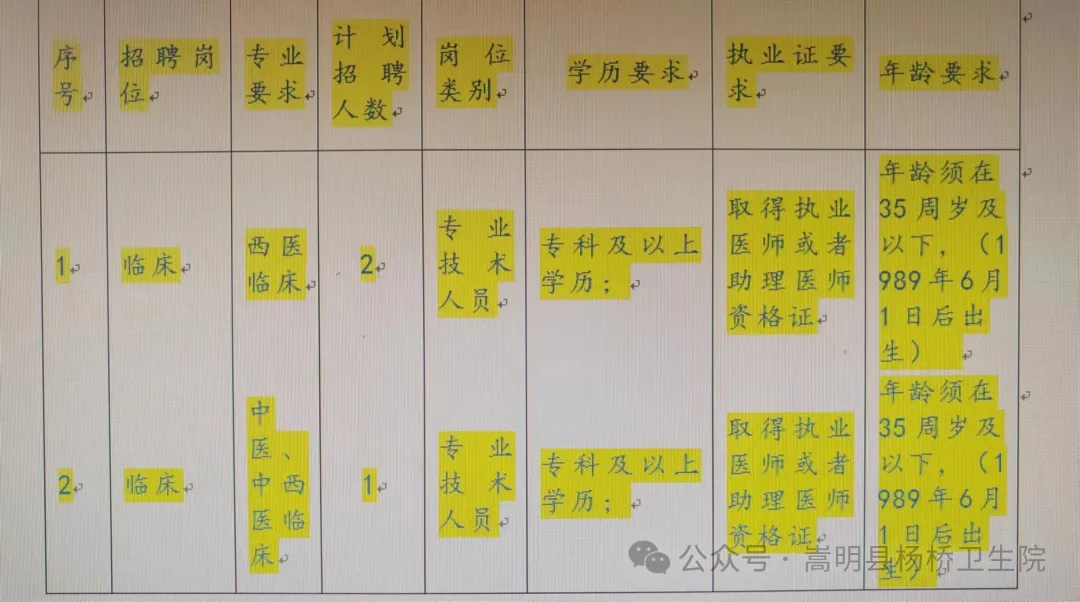 序号
招聘岗位
专业要求
计划招聘人数
岗位类别
学历要求
执业证要求
年龄要求
1
临床
西医临床
2
专业技术人员
专科及以上学历；
取得执业医师或者助理医师资格证
年龄须在35周岁及以下，（1989年6月1日后出生）
2
临床
中医、中西医临床
1
专业技术人员
专科及以上学历；
取得执业医师或者助理医师资格证
年龄须在35周岁及以下，（1989年6月1日后出生）
公众号·嵩明县杨桥卫生院